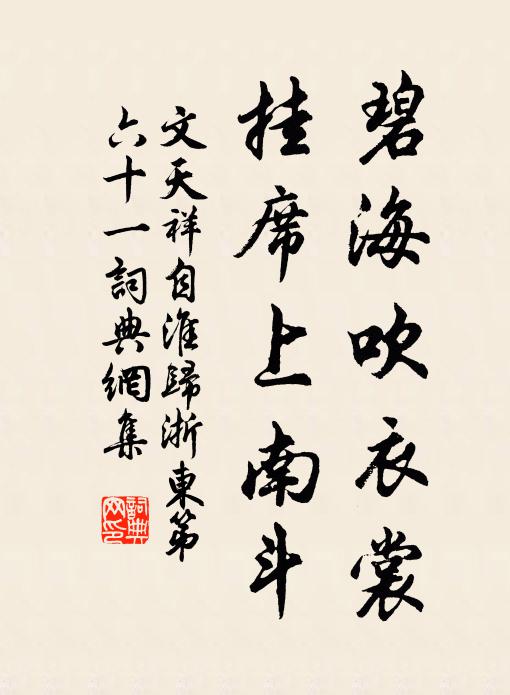 碧海吹衣裳
挂席上南斗
文天祥自淮歸浙東第
六十一詞典網集
詞典
网印